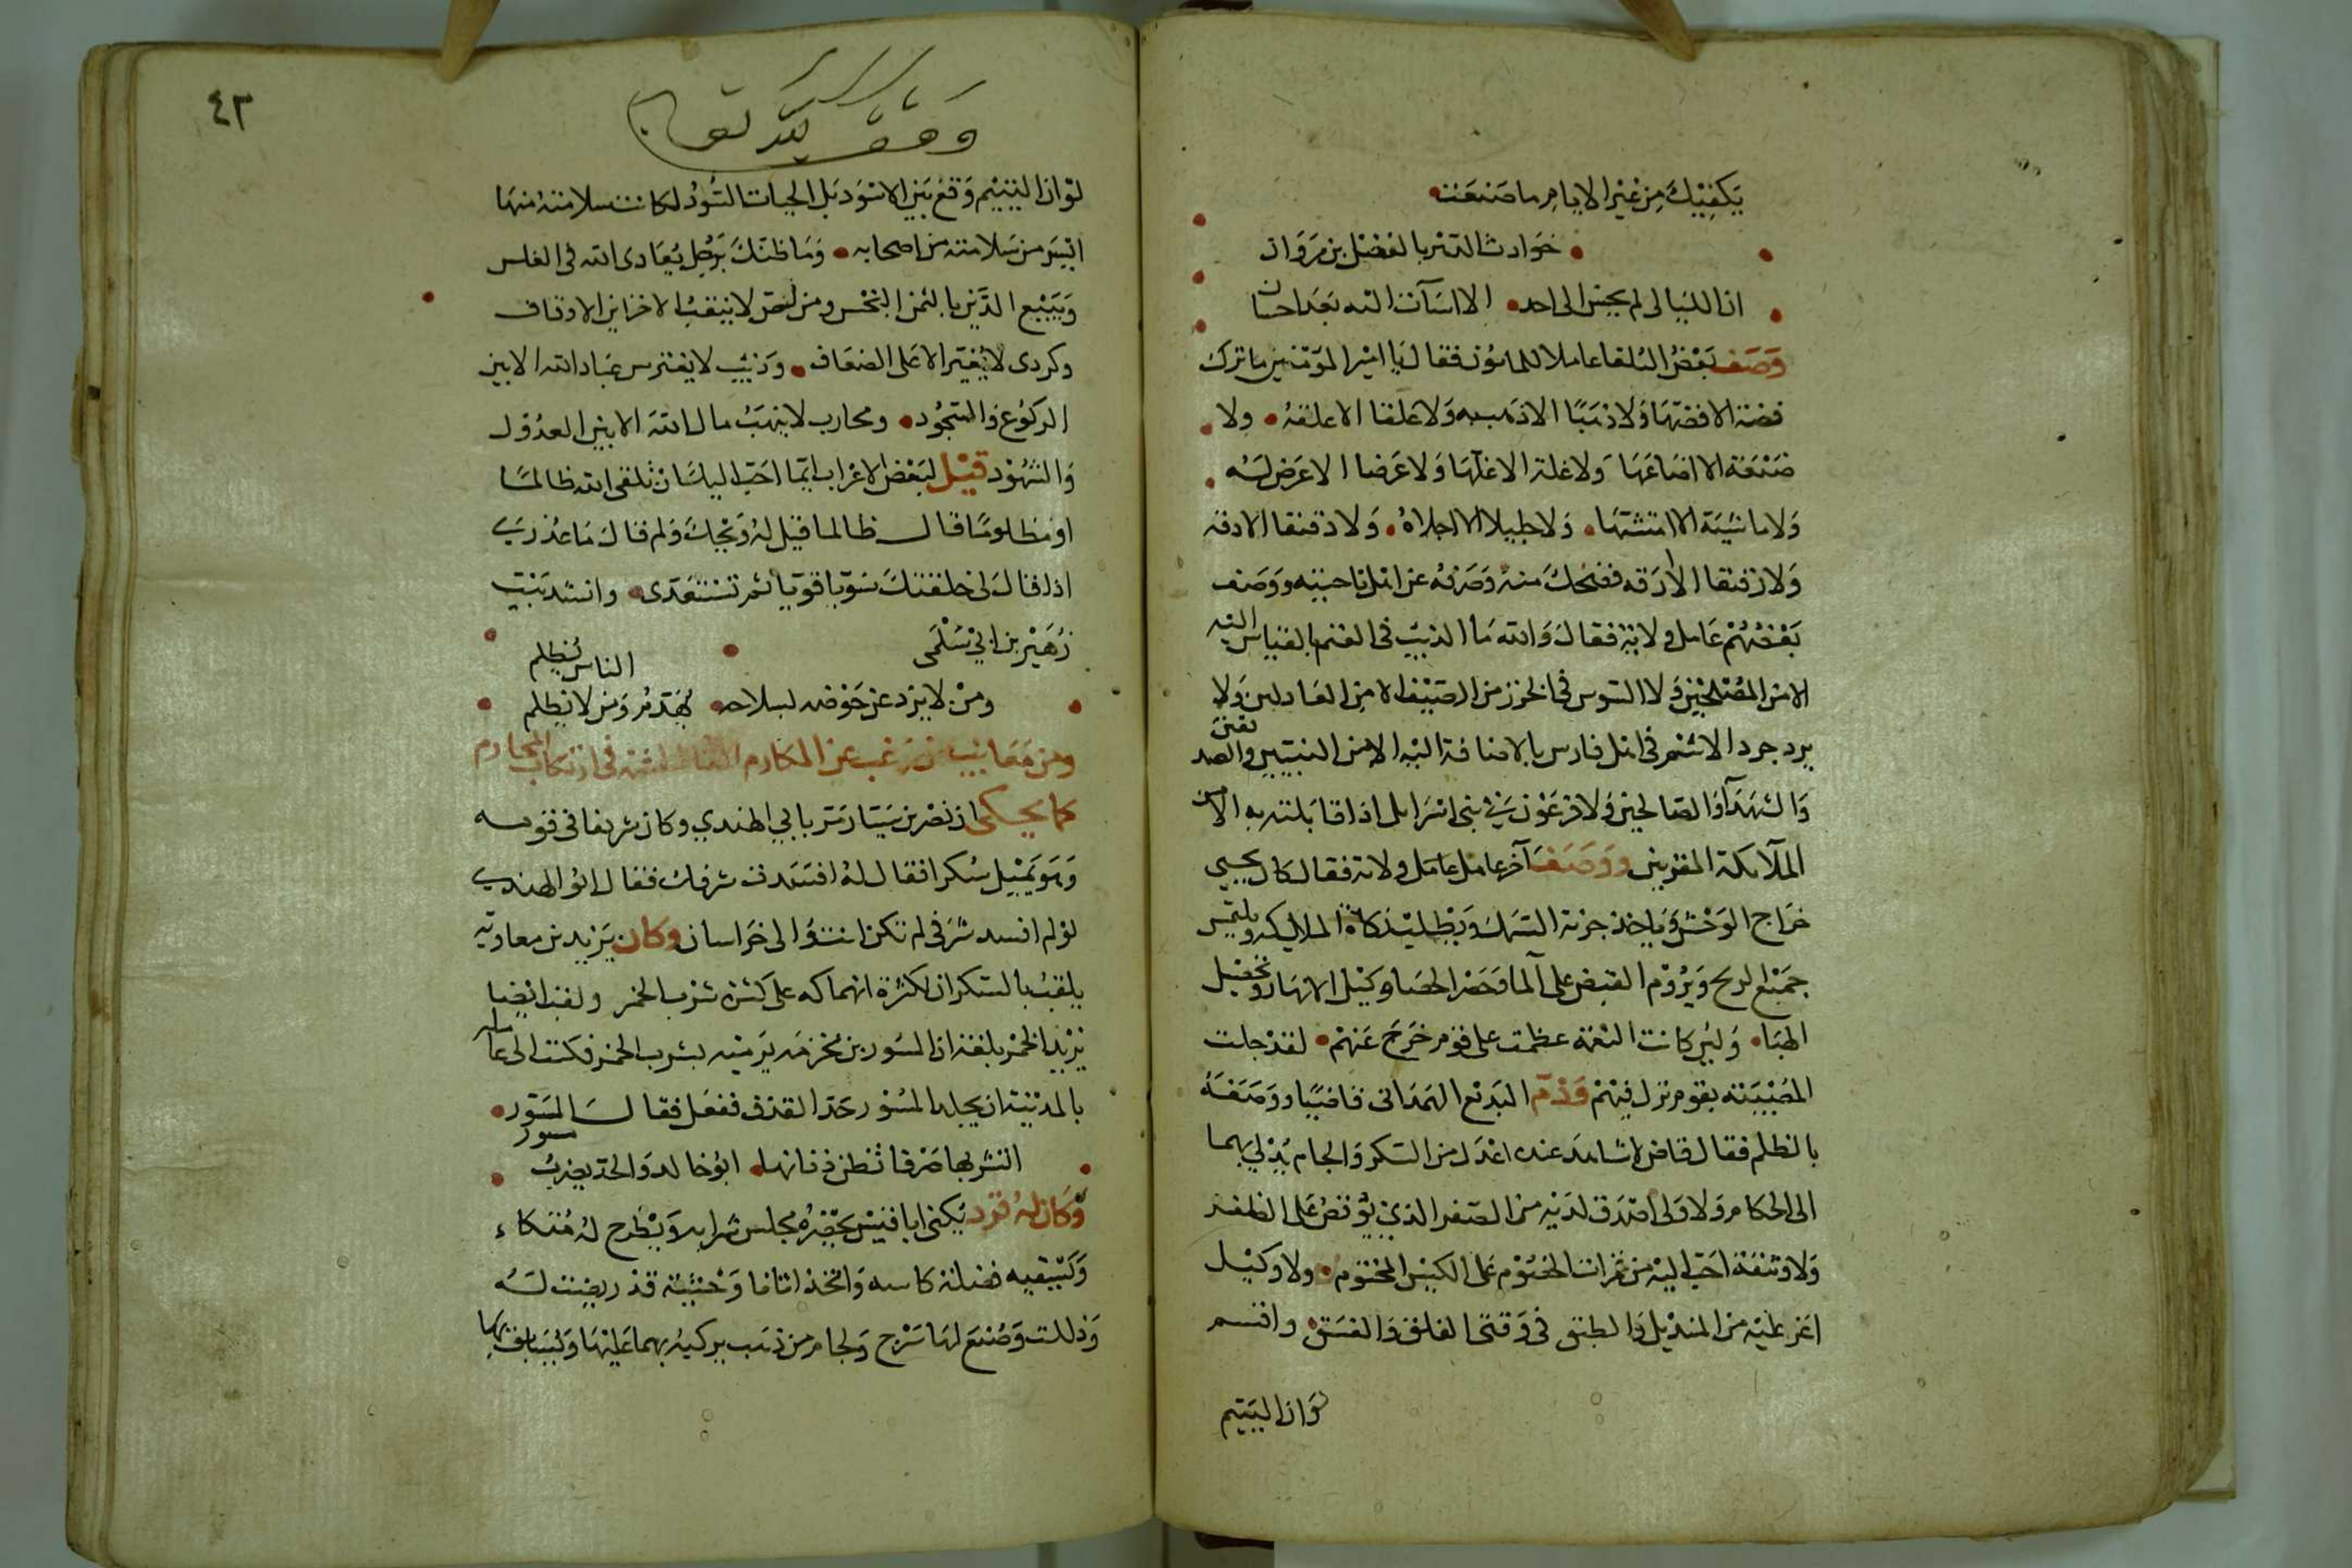 يكفيك من غير الايام ما صنعت
حوادث الدهر بالفضل بن مروان
ان الليالي لم يحسن الى احد الا اسآت اليه بعد احسان
وصف بعض البلغا عاملا للمامون فقال يا امير المومنين ما ترك
فضة الا فضها ولا ذهبا الا ذهب به ولا علقا الا علقه ولا
ضيعة الا اضاعها ولا غلة الا غلها ولا عرضا الا عرض له
ولا ماشية الا امتشها ولا جليلا الا اجلاه ولا دقيقا الا دقه
ولا رقيقا الا رقه فضحك منه وصرفه عن اهل ناحيته ووصف
بعضهم عامل ولاية فقال والله ما الذيب في الغنم بالقياس اليه
الا من المصلحين ولا السوس في الخز زمن الصيف الا من العادلين ولا
يزدجرد الاثيم في اهل فارس بالاضافة اليه الا من النبيين والصديقين
والشهدآ والصالحين ولا فرعون في بني اسرايل اذا قابلته به الا من
الملآئكة المقربين ووصف آخر عامل عامل ولاية فقال كان يجبي
خراج الوحش وياخذ جزية السمك ويطلب زكاة الملايكه ويلتمس
جميع الريح ويروم القبض على آلما وحصر الحصا وكيل الانهار وتحصيل
الهبا ولين كانت النعمة عظمت على قوم خرج عنهم لقد جلت
المصيبة بقوم نزل فيهم وذم البديع الهمداني قاضيا ووصفه
بالظلم فقال قاض لا شاهد عنده اعدل من السكر والجام يدلي بهما
الى الحكام ولا ولى اصدق لديه من الصفر الذي يرقص على الظفر
ولا وثيقة احب اليه من غمرات الخصوم على الكيس المختوم ولا وكيل
اعز عليه من المنديل والطبق في وقتي الغلق والغسق واقسم
لو ان اليتيم
٤٢
وقف لله تعالى
لو ان اليتيم وقع بين الاسود بل الحيات السود لكانت سلامته منها
ايسر من سلامته من اصحابه وما ظنك برجل يعادي الله في الفلس
ويبيع الدين بالثمن البخس ومن لص لا ينقب الا خزاين الاوقاف
وكردي لا يغير الا على الضعاف وذيب لا يفترس عباد الله الا بين
الركوع والسجود ومحارب لا ينهب مال الله الا بين العدول
والشهود قيل لبعض الاعراب ايما احب اليك ان تلقى الله ظالما
او مظلوما قال ظالما قيل له ويحك ولم قال ما عذري
اذا قال لي خلقتك سويا قويا ثم تستعدي وانشد بيت
زهير بن ابي سلمى
ومن لا يزد عن حوضه بسلاحه يهدم ومن لا يظلم الناس يظلم
ومن معايب من رغب عن المكارم في ارتكاب المحارم
كما يحكى ان نصر بن سيار مر بابي الهندي وكان شريفا في قومه
وهو يميل سكرا فقال له افسدت شرفك فقال ابو الهندي
لو لم افسد شرفي لم تكن انت والي خراسان وكان يزيد بن معاوية
يلقب بالسكران لكثرة انهماكه على كثرة شرب الخمر ولقب ايضا
يزيد الخمر بلغه ان المسور بن مخرمه يرميه بشرب الخمر فكتب الى عامله
بالمدينة ان يجلد المسور حد القذف ففعل فقال المسور
اتشربها صرفا تطن ذبانها ابو خالد والحد يضرب مسور
وكان له قرد يكنى ابا قيس يحضره مجلس شرابه ويطرح له متكاء
ويسقيه فضلة كاسه واتخذ اتانا وحشية قد ريضت له
وذللت وصنع لها سرج ولجام من ذهب يركبه بهما عليها ويسابق بها